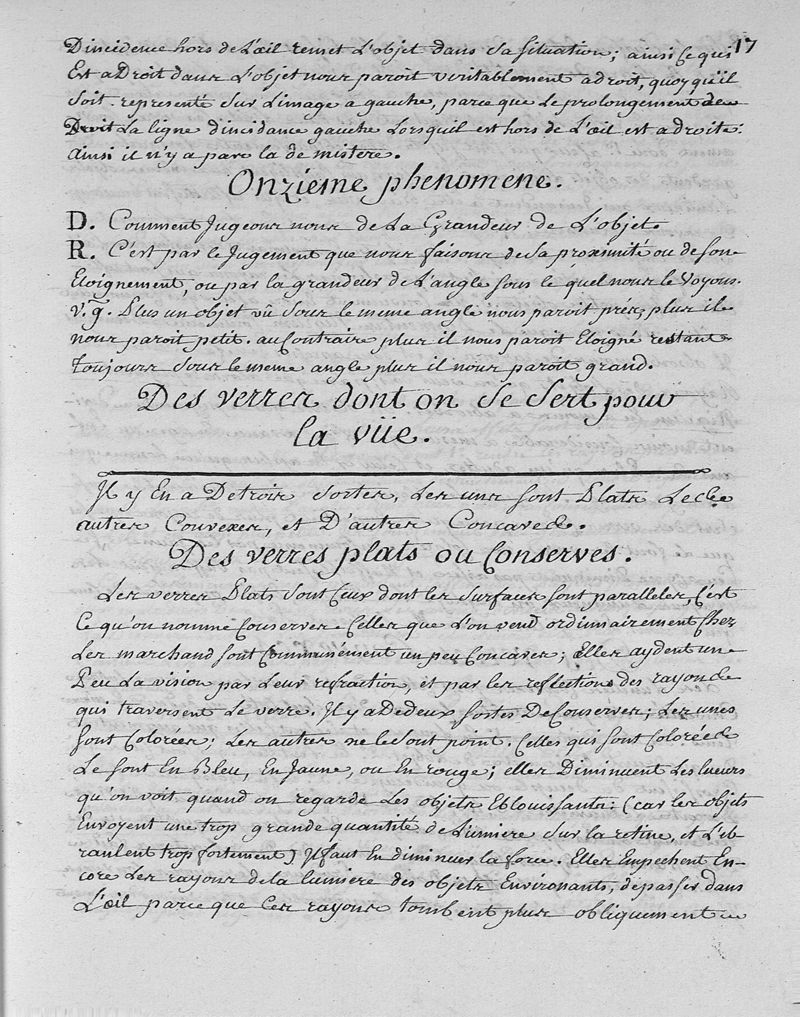 17
D'incidence hors de L'œil remet L'objet dans sa situation; ainsi ce qui
Est a Droit dans L'objet nous paroit veritablement a droit, quoy qu'il
soit representé sur Limage a gauche, parce que Le prolongement de
Droit La ligne d'incidance gauche Lorsquil est hors de L'œil est a droite:
ainsi il n'y a pas la de mistere.
Onzieme phenomene.
D. Comment Jugeons nous de La Grandeur de L'objet.
R. C'est par le Jugement que nous faisons de sa proximité ou de son
Eloignement, ou par la grandeur de L'angle sous le quel nous le Voyons.
v. g. Plus un objet vû sous le meme angle nous paroit prés, plus il
nous paroit petit. au Contraire plus il nous paroit Eloigné restant
Toujours sous le meme angle plus il nous paroit grand.
Des verres dont on se sert pour
la vüe.
Il y En a De trois sortes, Les uns sont Plats Les
autres Convexes, et D'autres Concaves.
Des verres plats ou Conserves.
Les verres Plats sont Ceux dont les surfaces sont paralleles, C'est
Ce qu'on nomme Conserves. Celles que L'on vend ordinnairement Chez
Les marchand sont Communément un peu Concaves; Elles aydent un
Peu La vision par Leur refraction, et par les reflections des rayons
qui traversent Le verre. Il y a De deux sortes De Conserves; Les unes
sont Colorées; Les autres ne le sont point. Celles qui sont Colorées
Le sont En Bleu, En Jaune, ou En rouge; elles Diminuent Les lueurs
qu'on voit quand on regarde Les objets Eblouissants: (car les objets
Envoyent une trop grande quantité de Lumiere sur la retine, et L'eb
ranlent trop fortement) Il faut En diminuer la force. Elles Empechent En-
core Les rayons de la lumiere des objets Environants, de passer dans
L'œil parce que Ces rayons tombent plus obliquement